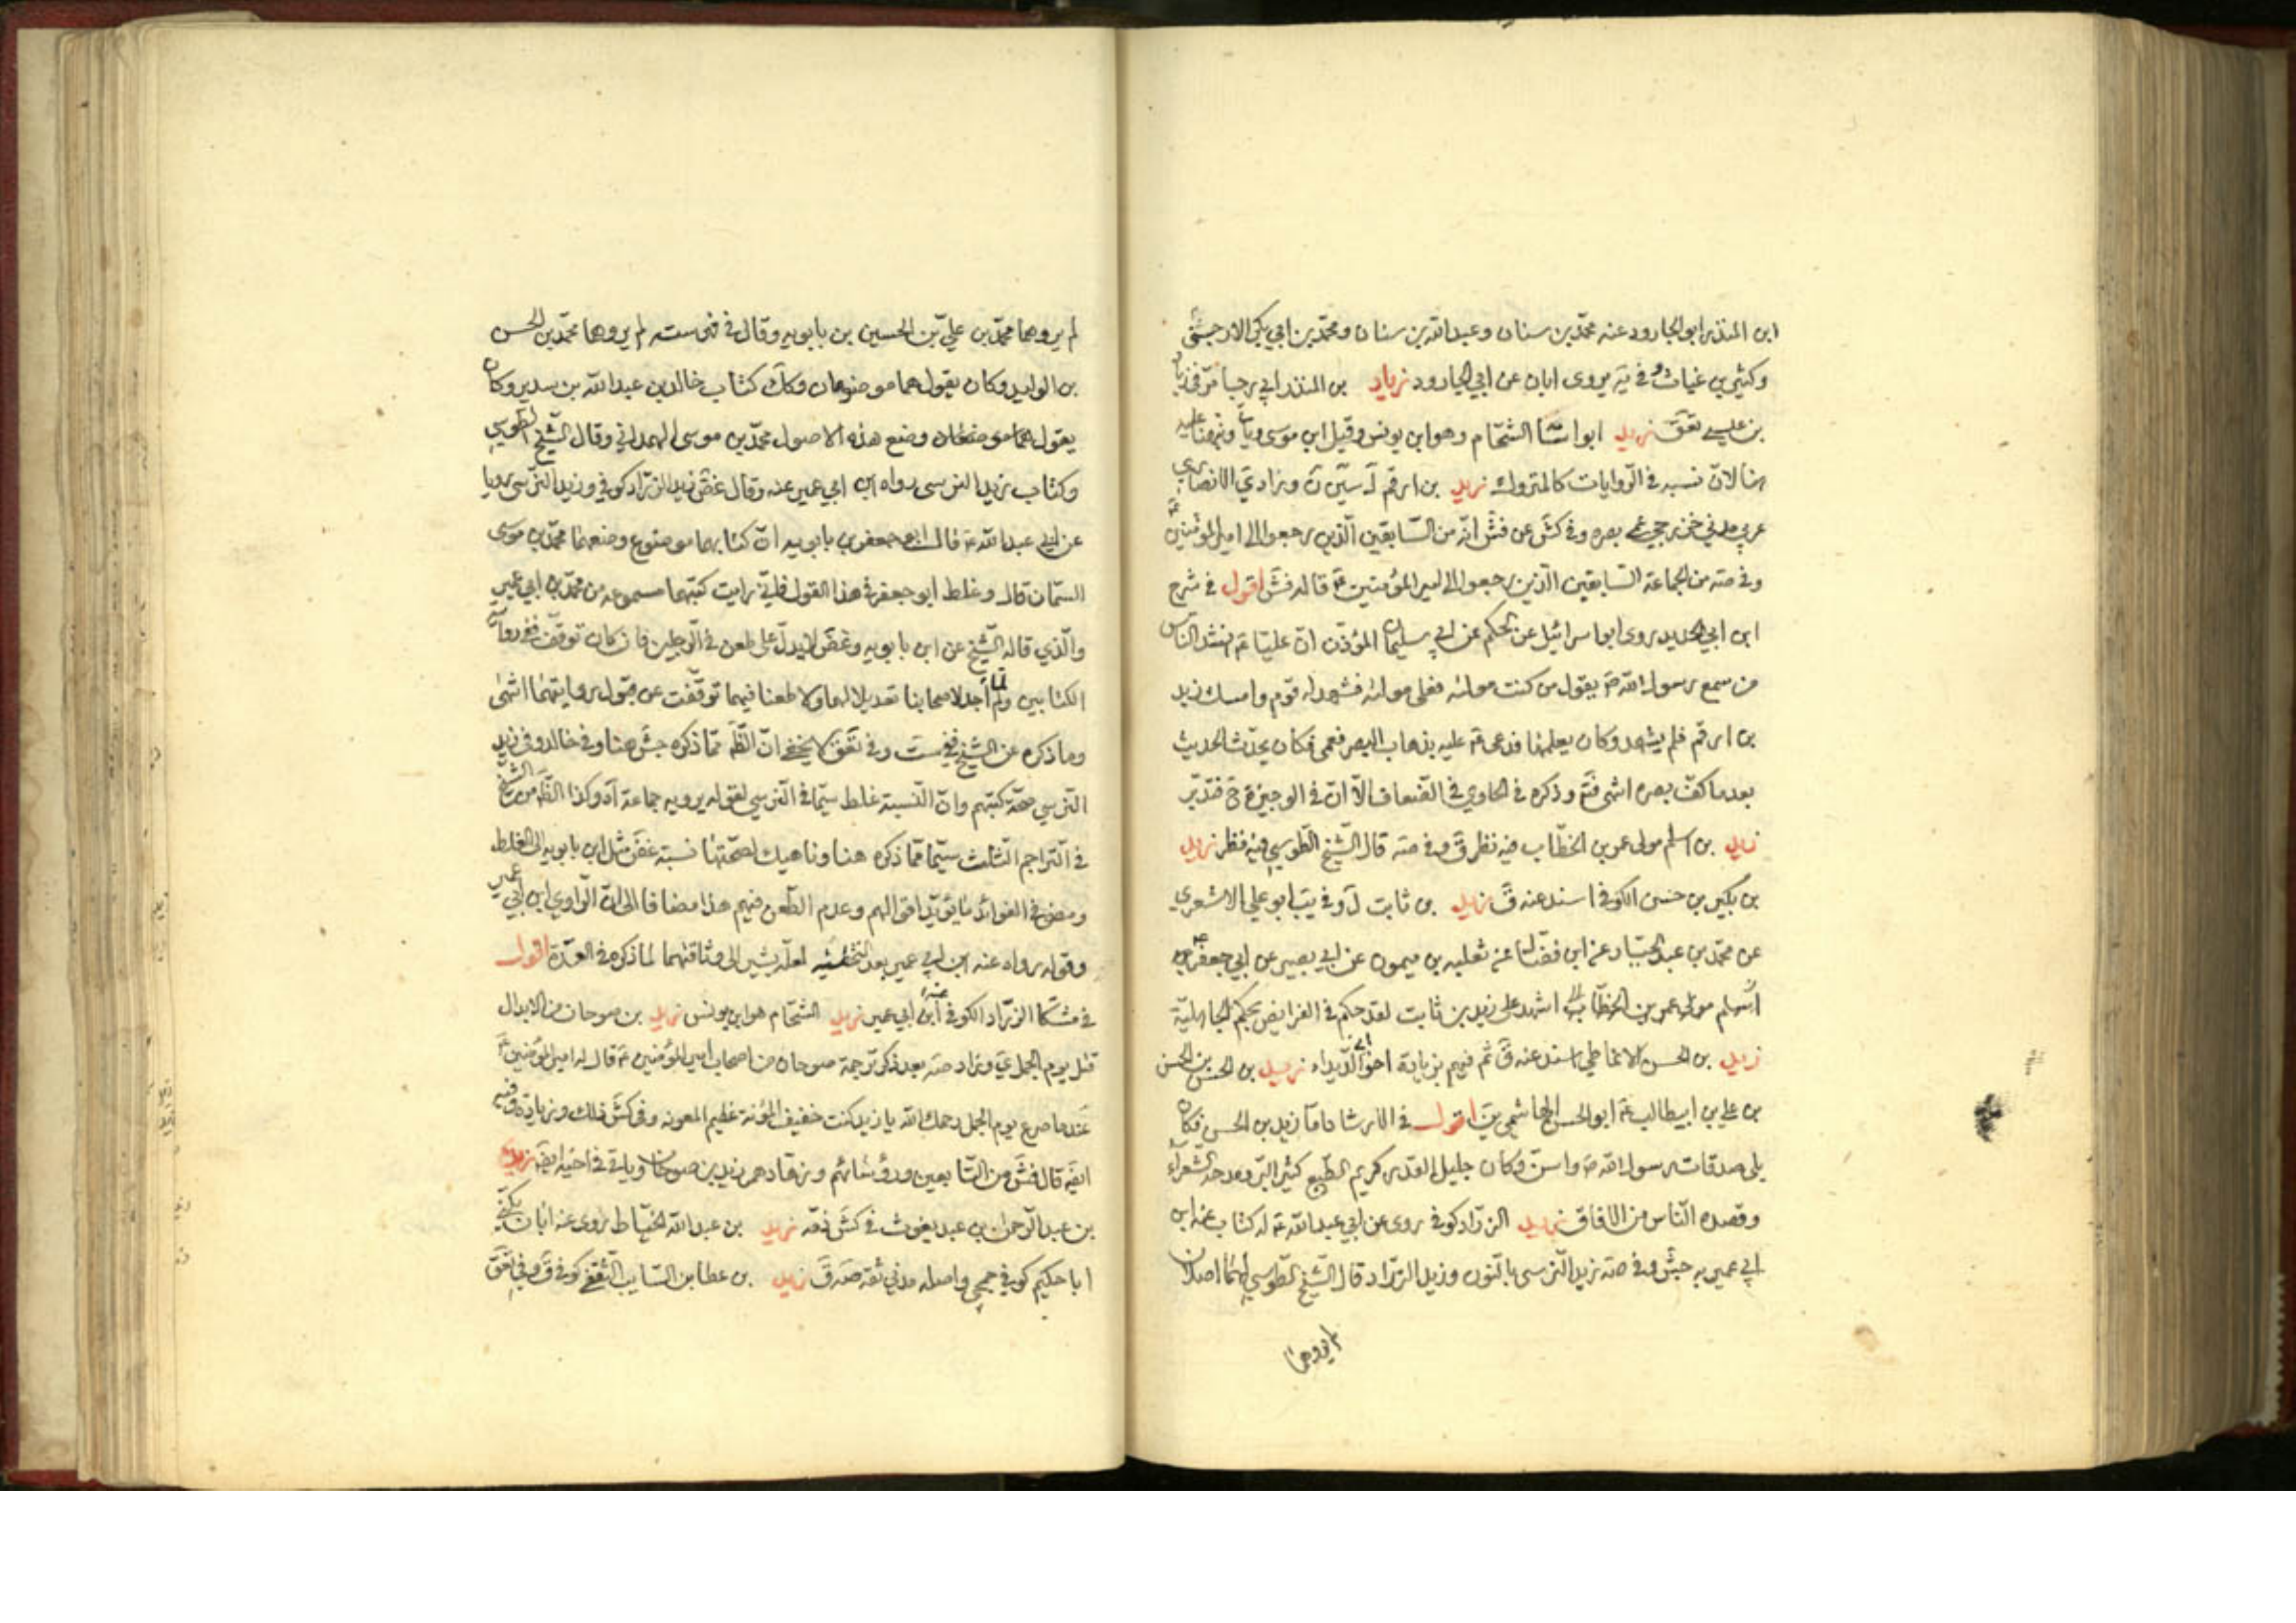 ابن المنذر ابو الجارود عنه محمّد بن سنان وعبد الله بن سنان ومحمّد بن ابي بكر الارحبي
وكثير بن عياش وفي يروى ابان عن ابي الجارود زياد بن المنذر ابي رجا مرّ في زياد
بن عيسى تعق زيد ابو اسامة الشحّام وهو ابن يونس وقيل ابن موسى ويأتي
هنا لانّ نسبه في الرّوايات كالمتروك زيد بن ارقم ل سين ن وزاد ي الانصاري
عربي مدني خزرجي عمى بصره وفي كش عن فش انّه من السّابقين الّذين رجعوا الى امير المؤمنين
وفي صه من الجماعة السّابقين الّذين رجعوا الى امير المؤمنين ع قاله فش اقول في شرح
ابن ابي الحديد روى ابو اسرائيل عن الحكم عن ابي سليمان المؤذّن انّ عليّا ع نشد النّاس
من سمع رسول الله ص يقول من كنت مولاه فعلى مولاه فشهد له قوم وامسك زيد
بن ارقم فلم يشهد وكان يعلمها فدعى ع عليه بذهاب البصر فعمى فكان يحدّث الحديث
بعد ما كفّ بصره انتهى فتم وذكره في الحاوي في الضعاف الّا انّ في الوجيزة ح فتدبّر
زيد بن اسلم مولى عمر بن الخطّاب فيه نظر ق وفي صه قال الشّيخ الطّوسي فيه نظر زيد
بن بكير بن حسن الكوفي اسند عنه ق زيد بن ثابت ل وفي يب ابو علي الاشعري
عن محمّد بن عبد الجبّار عن ابن فضّال عن ثعلبه بن ميمون عن ابي بصير عن ابي جعفر ع
اشهد على زيد بن ثابت لقد حكم في الفرايض بحكم الجاهليّة
زيد بن الحسن الانماطي اسند عنه ق ثم فيهم بزيادة اخو ابي الدّيداء زيد بن الحسن بن الحسن
بن علي بن ابيطالب ع ابو الحسن الهاشمي ين اقول في الارشاد امّا زيد بن الحسن فكان
يلى صدقات رسول الله ص واسنّ وكان جليل القدر كريم الطّبع كثير البرّ ومدحه الشعراء
وقصده النّاس من الافاق زيد الزرّاد كوفي روى عن ابي عبد الله ع له كتاب عنه ابن
ابي عمير به جش وفي صه زيد النّرسى بالنّون وزيد الزرّاد قال الشّيخ الطّوسي لهما اصلان
لم يروهما
لم يروهما محمّد بن عليّ بن الحسين بن بابويه وقال في فهرسته لم يروهما محمّد بن الحسن
بن الوليد وكان يقول هما موضوعان وكك كتاب خالد بن عبد الله بن سدير وكان
يقول وضع هذه الاصول محمّد بن موسى الهمداني وقال الشّيخ الطّوسي
وكتاب زيد النرسى رواه ابن ابي عمير عنه وقال غض زيد الزرّاد كوفي وزيد النّرسي رويا
عن ابي عبد الله ع قال ابو جعفر بن بابويه انّ كتابهما موضوع وضعهما محمّد بن موسى
السمّان قال وغلط ابو جعفر في هذا القول فانّي رايت كتبهما مسموعه من محمّد بن ابي عمير
والّذي قاله الشّيخ عن ابن بابويه وغض لا يدلّ على طعن في الرّجلين فان كان توقّف ففي رواية
الكتابين ولمّا لم اجد لاصحابنا تعديلا لهما ولا طعنا فيهما توقّفت عن قبول روايتهما انتهى
وما ذكره عن الشّيخ ففي ست وفي تعق لا يخفى انّ الظّ ممّا ذكره جش هنا وفي خالد وفي زيد
النّرسي صحّة كتبهم وانّ النّسبة غلط سيّما في النّرسي لقوله يرويه جماعة آه وكذا الظّ من الشّيخ
في التراجم الثلث سيّما ممّا ذكره هنا وناهيك لصحّتها نسبة غض مثل ابن بابويه الى الغلط
ومضى في الفوائد ما يؤيّد اقوالهم وعدم الطّعن فيهم هذا مضافا الى انّ الرّاوي ابن ابي عمير
وقوله رواه عنه ابن ابي عمير بعد التخطئه لعلّه يشير الى وثاقتهما لما ذكره في العدّة اقول
في مشكا الزرّاد الكوفي عنه ابن ابي عمير زيد الشحّام هو ابن يونس زيد بن صوحان من الابدال
قتل يوم الجمل ي وزاد صه بعد ذكر ترجمة صوحان من اصحاب امير المؤمنين ع قال له امير المؤمنين ع
عندما صرع يوم الجمل رحمك الله يا زيد كنت خفيف المؤنة عظيم المعونه وفي كش ذلك وزيادة وفيه
ايضه قال فش من التّابعين ورؤسائهم وزهّادهم زيد بن صوحان ويأتي في اخيه ايضه زيد
بن عبد الرّحمن بن عبد يغوث في كش ذمّه زيد بن عبد الله الخيّاط روى عنه ابان يكنّى
ابا حكيم كوفي جمحي واصله مدني ثقه صه ق زيد بن عطا بن السّايب الثّقفي كوفي ق وفي تعق